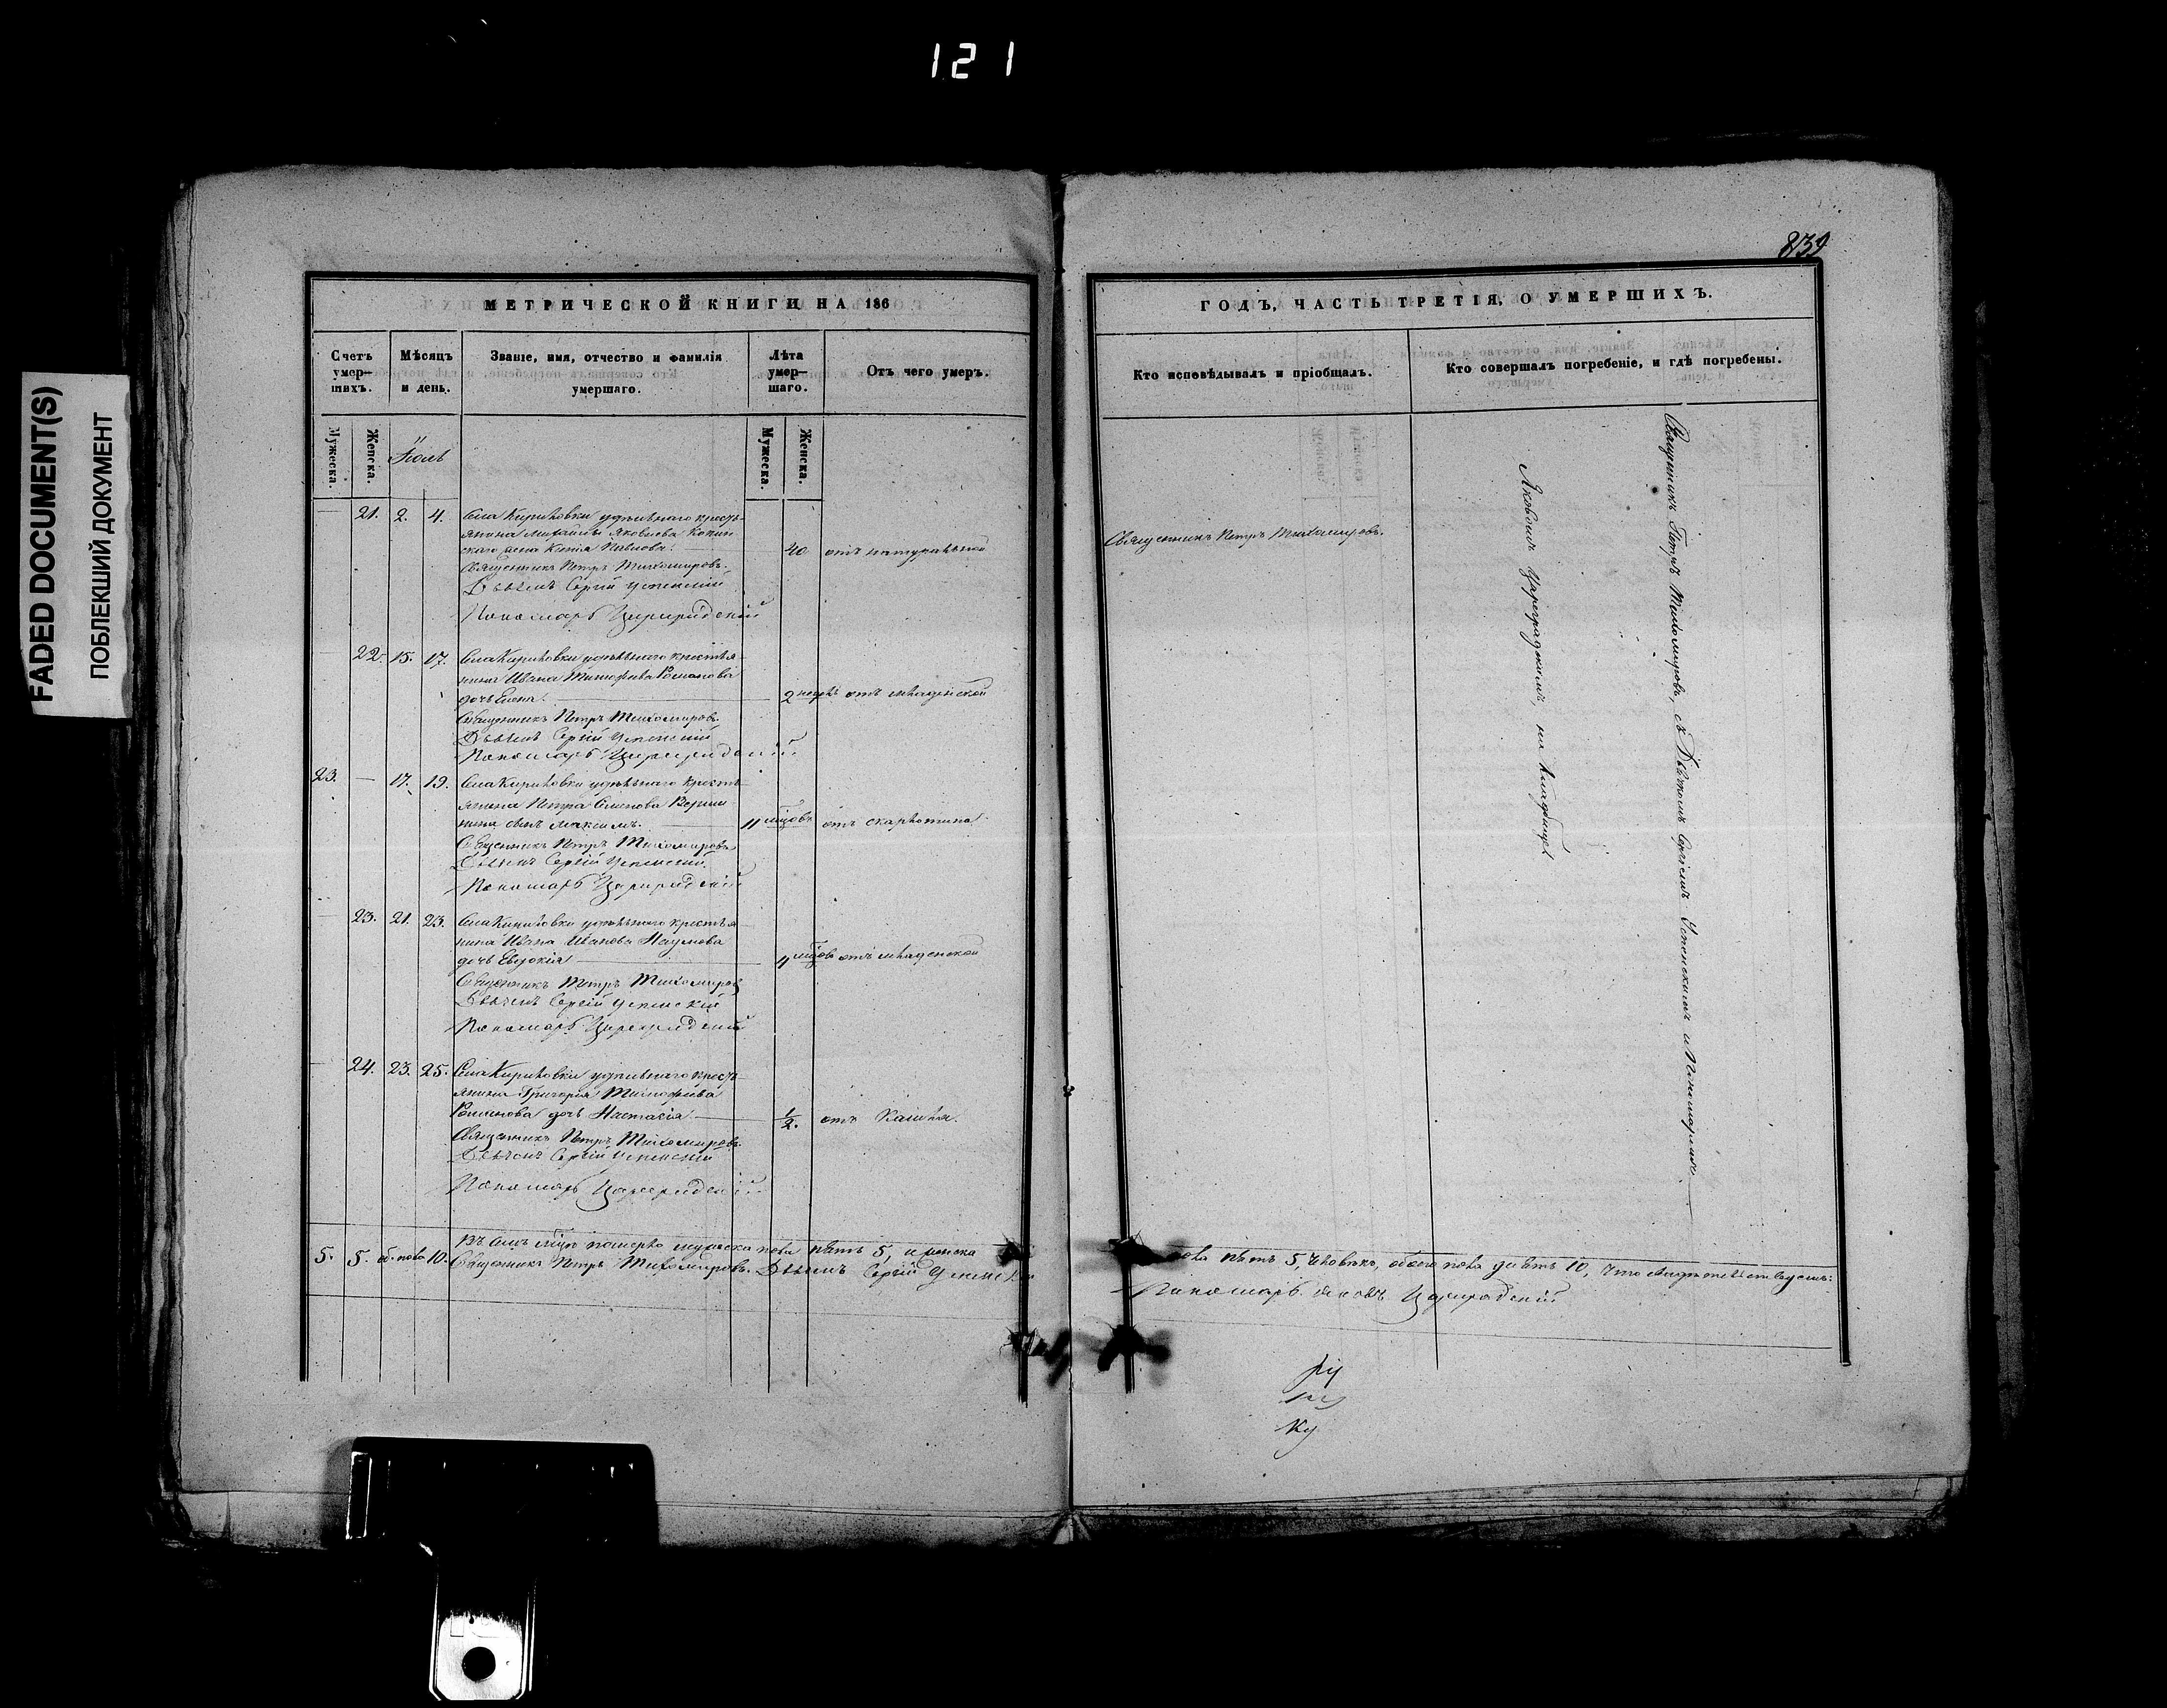 121
FADED DOCUMENT(S)
ПОБЛЕКШИЙ ДОКУМЕНТ
839
МЕТРИЧЕСКОЙ КНИГИ НА 186
Счетъ умер-шихъ.
Мѣсяцъ и день.
Званіе, имя, отчество и фамилія умершаго.
Лѣта умер-шаго.
Отъ чего умеръ.
Мужеска.
Женска.
Іюль
Мужеска.
Женска.
21. 2. 4. Села Кириловки удѣльнаго кресть-
янина Михаила Яковлева
жена Павлова. 40 отъ натуральной
Священникъ Петръ Тихомировъ.
Дьячекъ Сергій Успенскій
Пономарь Цареградскій
22. 15. 17. Села Кириловки удѣльнаго крестья-
нина Ивана Тимофеева Романова
дочь Елена. 2 недѣль отъ младенской
Священникъ Петръ Тихомировъ.
Дьячекъ Сергій Успенскій
Пономарь Цареградскій
23. — 17. 19. Села Кириловки удѣльнаго кресть-
янина Петра Семенова
сынъ Максимъ. 11 мцовъ отъ скарлатина
Священникъ Петръ Тихомировъ
Дьячекъ Сергій Успенскій.
Пономарь Цареградскій
23. 21. 23. Села Кириловки удѣльнаго крестья-
нина Ивана Иванова Наумова
дочь Евдокія мцовъ отъ младенской
Священникъ Петръ Тихомировъ
Дьячекъ Сергій Успенскій
Пономарь Цареградскій
24. 23. 25. Села Кириловки удѣльнаго кресть-
янина Григорія Тимофеева
Романова дочь Настасія 1/2. отъ кашля.
Священникъ Петръ Тихомировъ.
Дьячекъ Сергій Успенскій
Пономарь Цареградскій
5. 5. об. пола 10. Въ семъ мцѣ померло мужеска пола пять 5, и женска
Священникъ Петръ Тихомировъ. Дьячекъ Сергій Успенскій
ГОДЪ, ЧАСТЬ ТРЕТІЯ, О УМЕРШИХЪ.
Кто исповѣдывалъ и пріобщалъ.
Кто совершалъ погребеніе, и гдѣ погребены.
Священникъ Петръ Тихомировъ.
Священникъ Петръ Тихомировъ, съ Дьячкомъ Сергіемъ Успенскимъ и Пономаремъ
Яковомъ Цареградскимъ, на кладбищѣ
пола пять 5, человѣкъ, обоего пола десять 10, что свидѣтельствуемъ:
Пономарь Яковъ Цареградскій
ру
ку